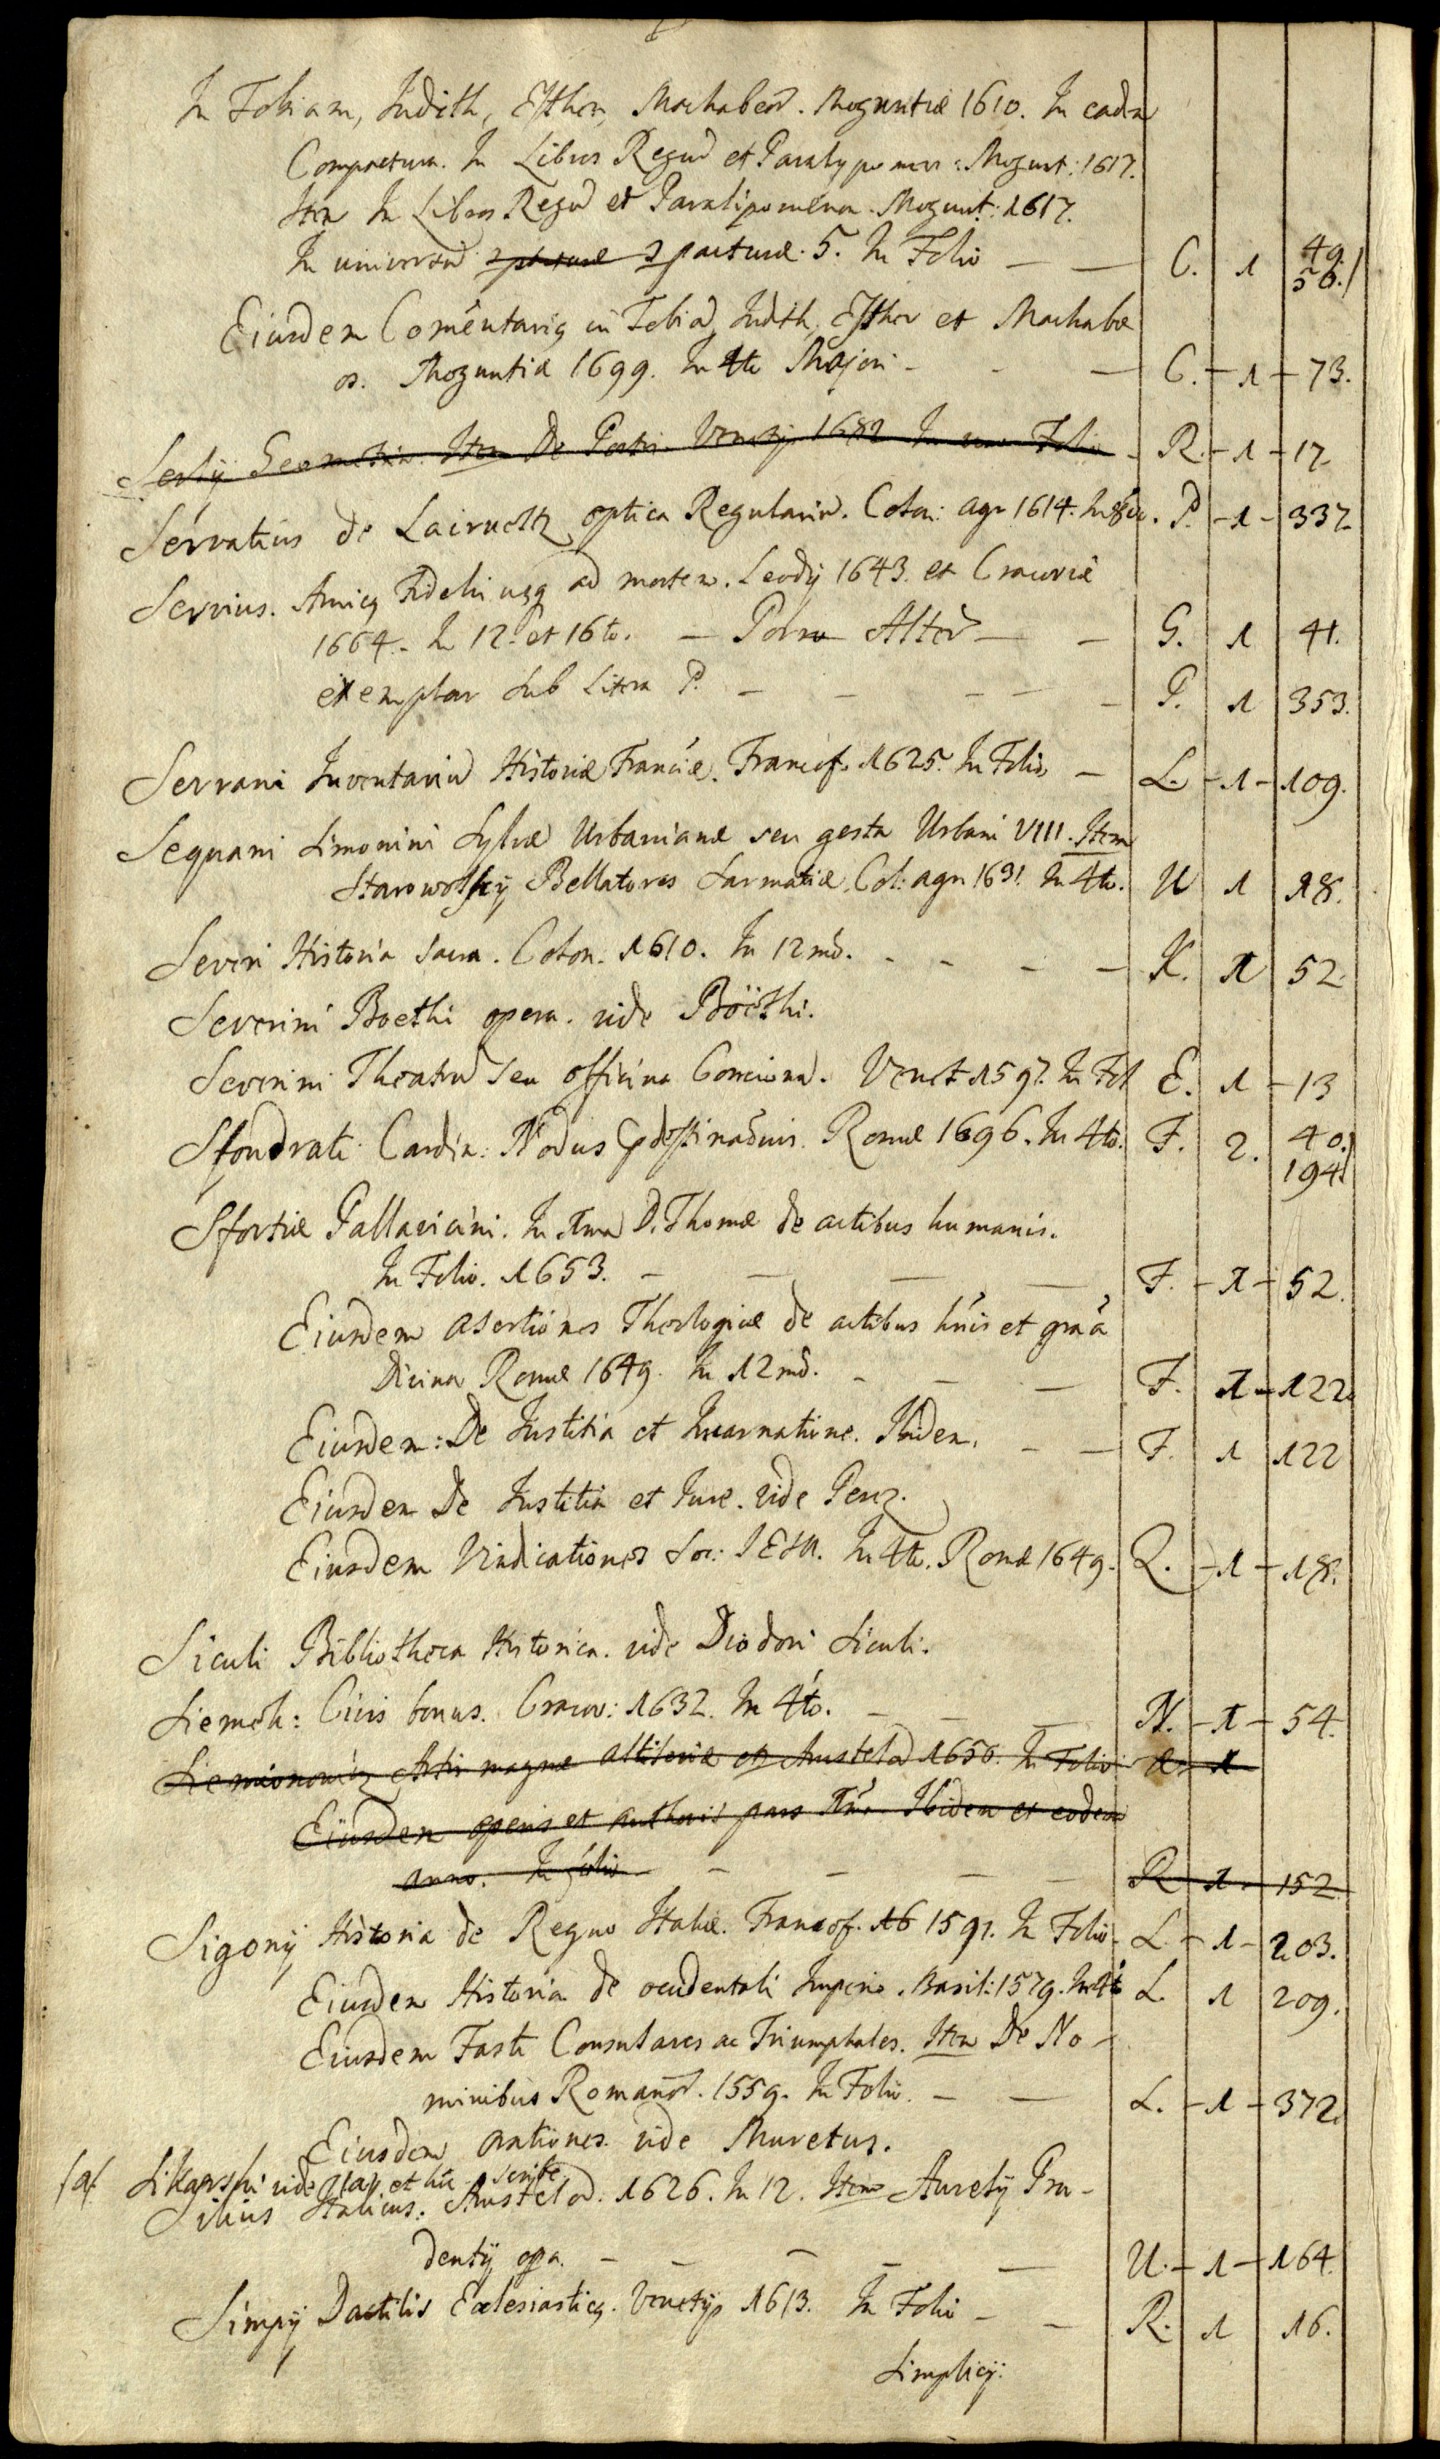 In Tobiam, Judith, Esther, Machabeor. Moguntiæ 1610. In eadem
Compactura. In Libros Regum et Paralypomen: Mogunt: 1617.
Item In Libros Regum et Paralipomenon. Mogunt: 1617.
In universum 2 parturæ. 5. In Folio — — C. 1 49. 56.
Eiusdem Comentarius in Tobiam, Judith, Esther et Machabæ
os. Moguntiæ 1699. In 4to Majori - - — C. - 1 - 73.
Serlij Geometria. Item De Venetijs 1682 In Folio - R. - 1 - 17
Servatius de Lairueltz optica Regularium. Colon: agr 1614. In 8vo. P. - 1 - 337
Servius. Amicus Fidelis usq ad mortem. Leodij 1643. et Cracoviæ
1664. In 12. et 16to. — Porro Alterum — — G. 1 41.
exemplar sub Litera P. — — — — P. 1 353.
Serrani Inventarium Historiæ Franciæ. Francof. 1625. In Folio — L. - 1 - 109.
Sequani Simonini Sylvæ Urbanianæ seu gesta Urbani VIII. Item
Starowolscij Bellatores Sarmatiæ. Col: agr 1631. In 4to. U 1 18.
Severi Historia sacra. Colon. 1610. In 12mo. - - - — K. 1 52
Severini Boethi opera. vide Böethi.
Severini Theatrum seu officina Concionum. Venet 1597. In Fol E. 1 - 13
Sfondrati Cardin: Nodus Prædestinaonis. Romæ 1696. In 4to. F. 2. 40. 194
Sfortiæ Pallavicini. In Imam D. Thomæ de actibus humanis.
In Folio. 1653. — — — — F. - 1 - 52.
Eiusdem asertiones Theologicæ de actibus huis et graa
Divina Romæ 1649. In 12mo. - — — F. 1 - 122
Eiusdem: De Iustitia et Incarnatione. Ibidem. - — F. 1 122
Eiusdem De Iustitia et Iure. vide Perez.
Eiusdem Vindicationes Soc: IESU. In 4to. Romæ 1649. Q. - 1 - 18.
Siculi Bibliotheca Historica. vide Diodori Siculi.
Siemek: Civis bonus. Cracov: 1632. In 4to. — — — N. - 1 - 54.
Siemionowicz Artis magnæ altileriæ Amstelod 1650. In Folio 1
Eiusdem operis et authoris pars Ima. Ibidem et eodem
anno. In folio — — — — — R 1 - 152
Sigonij Historia de Regno Italiæ. Francof. 16 1591. In Folio. L. - 1 - 203.
Eiusdem Historia de occidentali Imperio. Basil: 1579. In 4to L. 1 209.
Eiusdem Fasti Consulares ac Triumphales. Item De No-
minibus Romanor. 1559. In Folio. — — L. - 1 - 372.
Eiusdem orationes vide Muretus.
(a) Sikarski vide (a) et huc scribe
Silius Italicus. Amstelod. 1626. In 12. Item Aurelij Pru-
dentij opa. — — — — — U. - 1 - 164.
Simpij Dactilis Ecclesiasticus. Venetijs 1613. In Folio — — R. 1 16.
Simplicij: